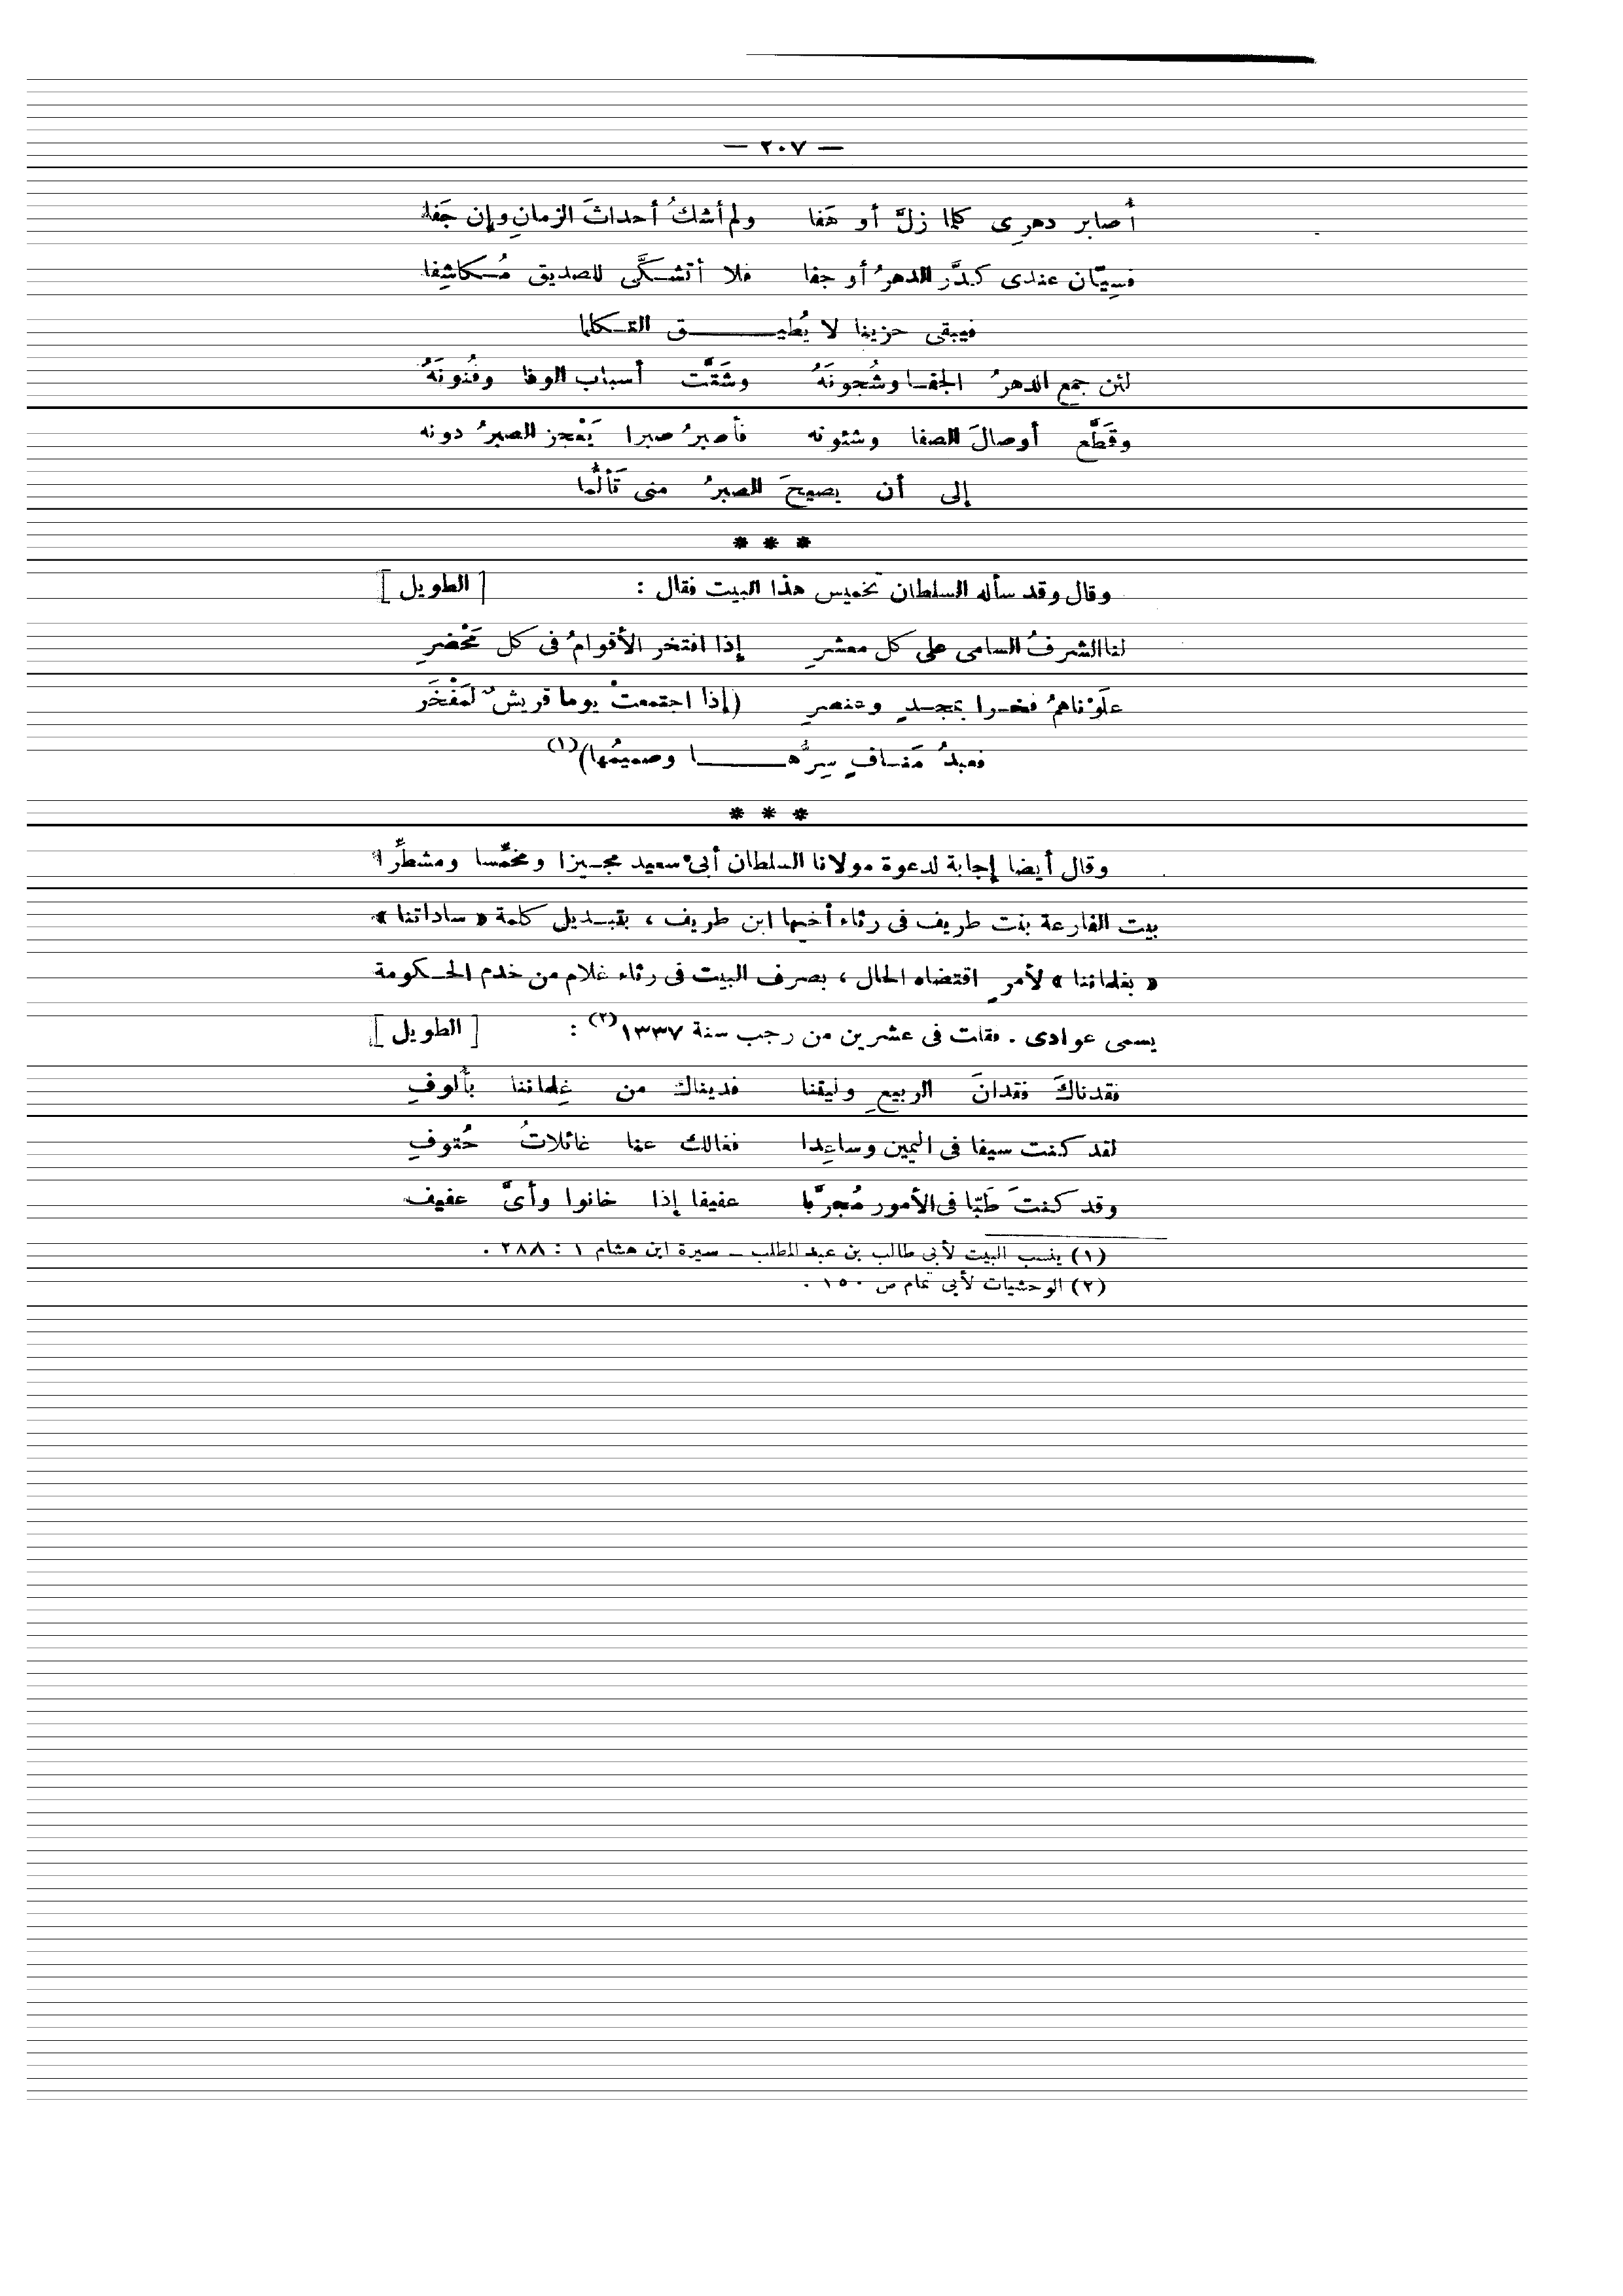 — ٢٠٧ —
أُصابر دهرِى كلما زلَّ أو هَفا ولم أشكُ أحداثَ الزمانِ وإن جَفا
فسِيّان عندى كدَّر الدهرُ أو جفا فلا أتشكَّى للصديق مُكاشِفا
فيبقى حزينا لا يُطيق التكلما
لئن جمع الدهرُ الجفا وشُجونَهُ وشَتَّت أسباب الوفا وفُنونَهُ
وقَطَّع أوصالَ الصفا وشئونه فأصبرُ صبرا يَعْجز الصبرُ دونه
إلى أن يصيحَ الصبرُ منى تَألُّما
* * *
وقال وقد سأله السلطان تخميس هذا البيت فقال : [ الطويل ]
لنا الشرفُ السامى على كل معشرِ إذا افتخر الأقوامُ فى كل مَحْضرِ
علَوْناهمُ فخرا بمجدٍ وعنصرِ (إذا اجتمعتْ يوما قريشٌ لمَفْخَر
فعبدُ مَنافٍ سِرُّها وصميمُها)(١)
* * *
وقال أيضا إجابة لدعوة مولانا السلطان أبى سعيد مجيزا ومخمِّسا ومشطِّرا
بيت الفارعة بنت طريف فى رثاء أخيها ابن طريف ، بتبديل كلمة « ساداتنا »
« بغلماننا » لأمرٍ اقتضاه الحال ، بصرف البيت فى رثاء غلام من خدم الحكومة
يسمى عوادى . فقلت فى عشرين من رجب سنة ١٣٣٧(٢) : [ الطويل ]
فقدناكَ فقدانَ الربيعِ وليتنا فديناك من غِلماننا بألوفِ
لقد كنت سيفا فى اليمين وساعِدا فغالك عنا غائلاتُ حُتوفِ
وقد كنتَ طَبّا فى الأمور مُجرَّبا عفيفا إذا خانوا وأىَّ عفيف
(١) ينسب البيت لأبي طالب بن عبد المطلب – سيرة ابن هشام ١ : ٢٨٨ .
(٢) الوحشيات لأبي تمام ص ١٥٠ .